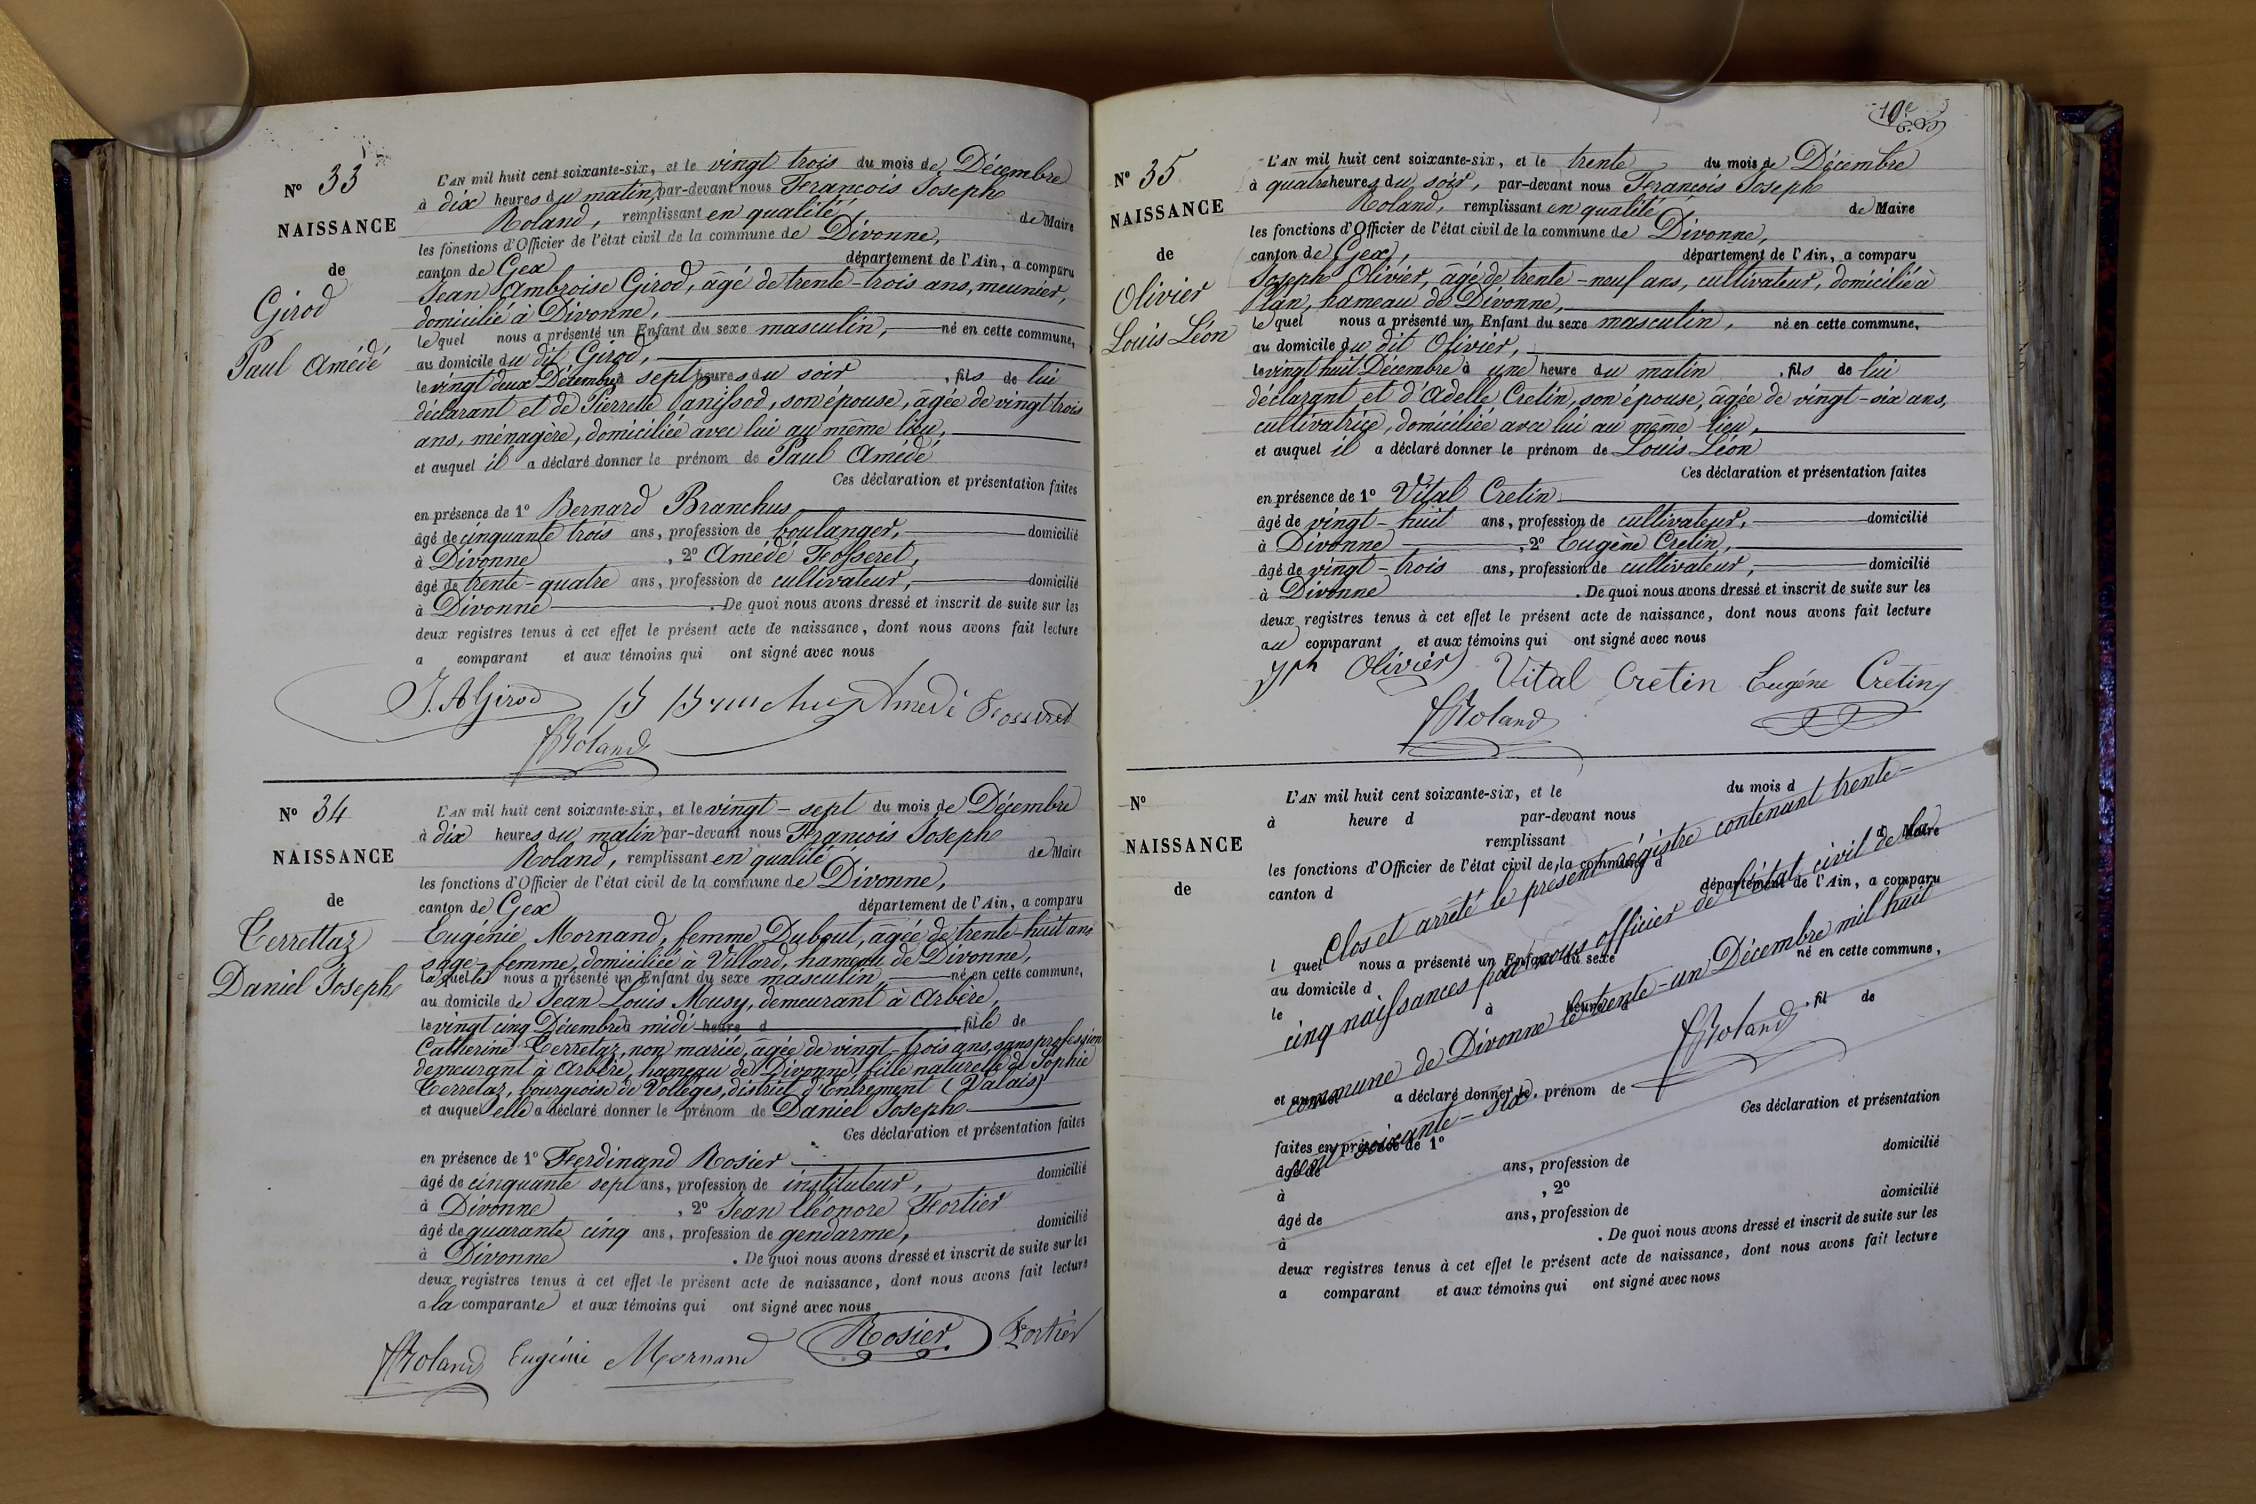 N° 33
NAISSANCE
de
Girod
Paul Amédé
L'AN mil huit cent soixante-six, et le vingt trois du mois de Décembre
à dix heures du matin, par-devant nous François Joseph
Roland, remplissant en qualité de Maire
les fonctions d'Officier de l'état civil de la commune de Divonne,
canton de Gex département de l'Ain, a comparu
Jean Ambroise Girod, âgé de trente-trois ans, meunier,
domicilié à Divonne,
lequel nous a présenté un Enfant du sexe masculin, né en cette commune,
au domicile du dit Girod,
le vingt deux Décembre à sept heures du soir, fils de lui
déclarant et de Pierrette Panissod, son épouse, âgée de vingt trois
ans, ménagère, domiciliée avec lui au même lieu,
et auquel il a déclaré donner le prénom de Paul Amédé
Ces déclaration et présentation faites
en présence de 1° Bernard Branchus
âgé de cinquante trois ans, profession de boulanger, domicilié
à Divonne, 2° Amédé Fosseret,
âgé de trente-quatre ans, profession de cultivateur, domicilié
à Divonne. De quoi nous avons dressé et inscrit de suite sur les
deux registres tenus à cet effet le présent acte de naissance, dont nous avons fait lecture
a comparant et aux témoins qui ont signé avec nous
J. A Girod B Branchus Amédé Fosseret
Roland
N° 34
NAISSANCE
de
Terrettaz
Daniel Joseph
L'AN mil huit cent soixante-six, et le vingt-sept du mois de Décembre
à dix heures du matin par-devant nous François Joseph
Roland, remplissant en qualité de Maire
les fonctions d'Officier de l'état civil de la commune de Divonne,
canton de Gex département de l'Ain, a comparu
Eugénie Mornand, femme Dubout, âgée de trente-huit ans
sage-femme, domiciliée à Villard, hameau de Divonne,
laquelle nous a présenté un Enfant du sexe masculin, né en cette commune,
au domicile de Jean Louis Musy, demeurant à Arbère,
le vingt cinq Décembre à midi heure d, fils de
Catherine Terretaz, non mariée, âgée de vingt trois ans, sans profession
demeurant à Arbère, hameau de Divonne, fille naturelle de Sophie
Terretaz, bourgeoise de Vollèges, district d'Entremont (Valais)
et auquel elle a déclaré donner le prénom de Daniel Joseph
Ces déclaration et présentation faites
en présence de 1° Ferdinand Rosier
âgé de cinquante sept ans, profession de instituteur, domicilié
à Divonne, 2° Jean Eléonore Fortier
âgé de quarante cinq ans, profession de gendarme, domicilié
à Divonne. De quoi nous avons dressé et inscrit de suite sur les
deux registres tenus à cet effet le présent acte de naissance, dont nous avons fait lecture
a la comparante et aux témoins qui ont signé avec nous
Roland Eugénie Mornand Rosier Fortier
10e
N° 35
NAISSANCE
de
Olivier
Louis Léon
L'AN mil huit cent soixante-six, et le trente du mois de Décembre
à quatre heures du soir, par-devant nous François Joseph
Roland, remplissant en qualité de Maire
les fonctions d'Officier de l'état civil de la commune de Divonne,
canton de Gex, département de l'Ain, a comparu
Joseph Olivier, âgé de trente-neuf ans, cultivateur, domicilié à
Plan, hameau de Divonne,
lequel nous a présenté un Enfant du sexe masculin, né en cette commune,
au domicile du dit Olivier,
le vingt huit Décembre à une heure du matin, fils de lui
déclarant et d'Adelle Cretin, son épouse, âgée de vingt-six ans,
cultivatrice, domiciliée avec lui au même lieu,
et auquel il a déclaré donner le prénom de Louis Léon
Ces déclaration et présentation faites
en présence de 1° Vital Cretin
âgé de vingt-huit ans, profession de cultivateur, domicilié
à Divonne, 2° Eugène Cretin,
âgé de vingt-trois ans, profession de cultivateur, domicilié
à Divonne. De quoi nous avons dressé et inscrit de suite sur les
deux registres tenus à cet effet le présent acte de naissance, dont nous avons fait lecture
au comparant et aux témoins qui ont signé avec nous
Jph Olivier Vital Cretin Eugéne Cretin
Roland
N°
NAISSANCE
de
L'AN mil huit cent soixante-six, et le du mois d
à heure d par-devant nous
remplissant d Maire
les fonctions d'Officier de l'état civil de la commune d
canton d département de l'Ain, a comparu
Clos et arrêté le présent régistre contenant trente-
cinq naissances par nous officier de l'état civil de la
commune de Divonne le trente-un Décembre mil huit
cent soixante-six
Roland
l quel nous a présenté un Enfant du sexe né en cette commune,
au domicile d
le à heure d, fil de
et auquel a déclaré donner le prénom de
Ces déclaration et présentation
faites en présence de 1° domicilié
âgé de ans, profession de
à, 2°
âgé de ans, profession de domicilié
à. De quoi nous avons dressé et inscrit de suite sur les
deux registres tenus à cet effet le présent acte de naissance, dont nous avons fait lecture
a comparant et aux témoins qui ont signé avec nous